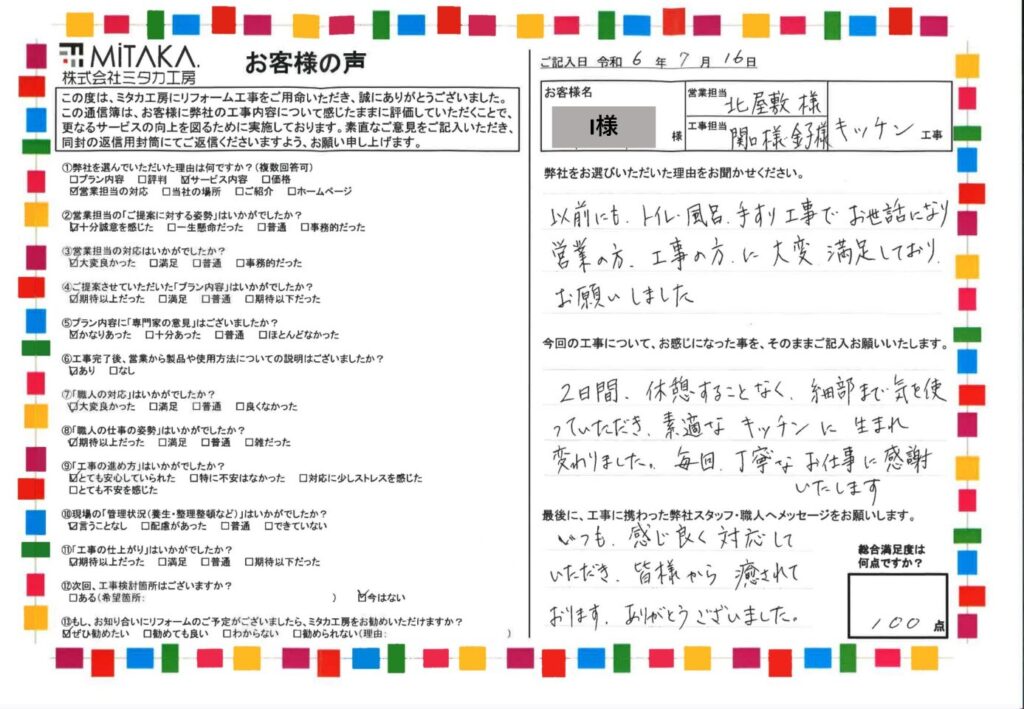 MiTAKA.
株式会社ミタカ工房
お客様の声
この度は、ミタカ工房にリフォーム工事をご用命いただき、誠にありがとうございました。
この通信簿は、お客様に弊社の工事内容について感じたままに評価していただくことで、
更なるサービスの向上を図るために実施しております。素直なご意見をご記入いただき、
同封の返信用封筒にてご返信くださいますよう、お願い申し上げます。
①弊社を選んでいただいた理由は何ですか?(複数回答可)
□プラン内容 □評判 ☑サービス内容 □価格
☑営業担当の対応 □当社の場所 □ご紹介 □ホームページ
②営業担当の「ご提案に対する姿勢」はいかがでしたか?
☑十分誠意を感じた □一生懸命だった □普通 □事務的だった
③営業担当の対応はいかがでしたか?
☑大変良かった □満足 □普通 □事務的だった
④ご提案させていただいた「プラン内容」はいかがでしたか?
☑期待以上だった □満足 □普通 □期待以下だった
⑤プラン内容に「専門家の意見」はございましたか?
☑かなりあった □十分あった □普通 □ほとんどなかった
⑥工事完了後、営業から製品や使用方法についての説明はございましたか?
☑あり □なし
⑦「職人の対応」はいかがでしたか?
☑大変良かった □満足 □普通 □良くなかった
⑧「職人の仕事の姿勢」はいかがでしたか?
☑期待以上だった □満足 □普通 □雑だった
⑨「工事の進め方」はいかがでしたか?
☑とても安心していられた □特に不安はなかった □対応に少しストレスを感じた
□とても不安を感じた
⑩現場の「管理状況(養生・整理整頓など)」はいかがでしたか?
☑言うことなし □配慮があった □普通 □できていない
⑪「工事の仕上がり」はいかがでしたか?
☑期待以上だった □満足 □普通 □期待以下だった
⑫次回、工事検討箇所はございますか?
□ある(希望箇所: ) ☑今はない
⑬もし、お知り合いにリフォームのご予定がございましたら、ミタカ工房をお勧めいただけますか?
☑ぜひ勧めたい □勧めても良い □わからない □勧められない(理由: )
ご記入日 令和 6 年 7 月 16日
お客様名
I様 様
営業担当 北屋敷 様
工事担当 関口様 金子様 キッチン 工事
弊社をお選びいただいた理由をお聞かせください。
以前にも、トイレ・風呂、手すり工事で お世話になり
営業の方、工事の方、に 大変 満足しており、
お願いしました
今回の工事について、お感じになった事を、そのままご記入お願いいたします。
2日間、休憩することなく、細部まで気を使
っていただき、素適な キッチン に 生まれ
変わりました。毎回、丁寧な お仕事に感謝
いたします
最後に、工事に携わった弊社スタッフ・職人へメッセージをお願いします。
いつも、感じ良く 対応して
いただき、皆様から 癒されて
おります。ありがとうございました。
総合満足度は
何点ですか?
100 点